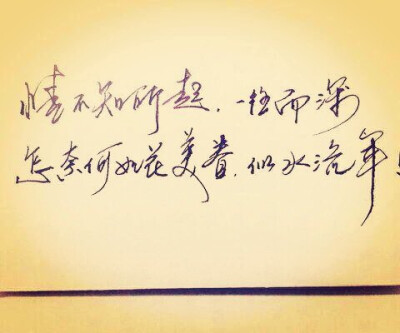 情不知所起，一往而深
怎奈何如花美眷，似水流年